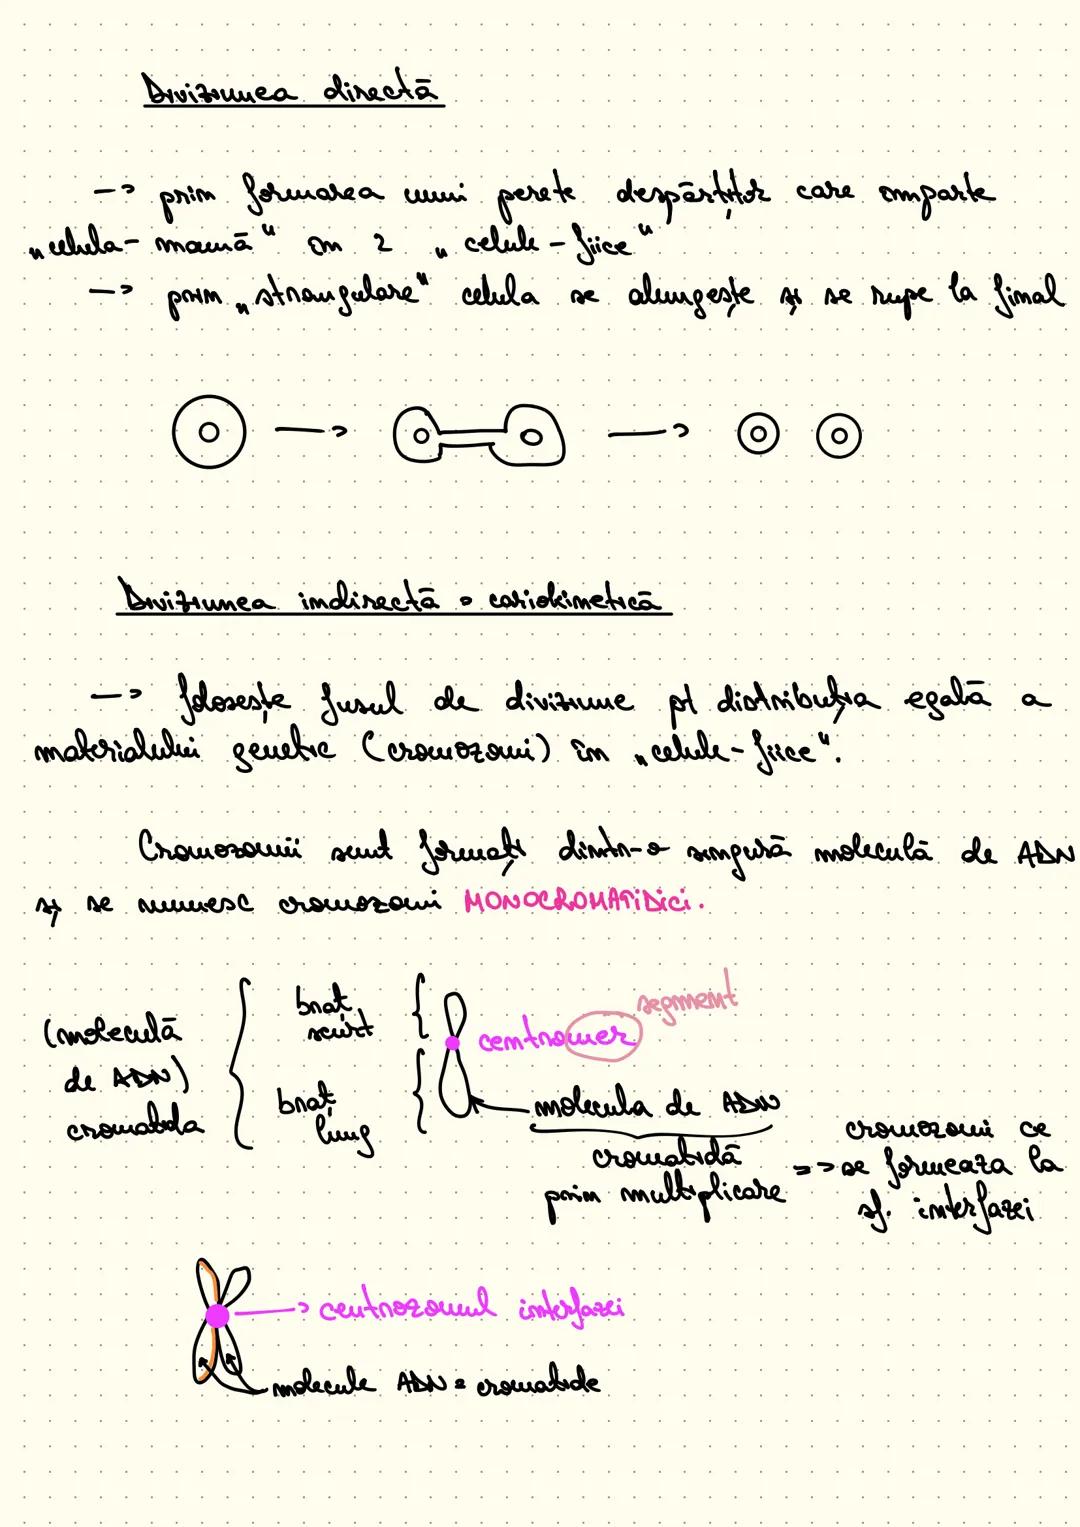 Diviziunea directă
–> prin formarea unui perete despărțitor care împarte
„celula-mamă" în 2 „celule-fiice"
–> prin „strangulare" celula se alungește și se rupe la final
–>
–>
Diviziunea indirectă = cariokinetică
–> folosește fusul de diviziune pt distribuția egală a
materialului genetic (cromozomi) în „celule-fiice".
Cromozomii sunt formați dintr-o singură moleculă de ADN
și se numesc cromozomi MONOCROMATIDICI.
(moleculă
de ADN)
cromatida
braț
scurt
braț
lung
centromer
segment
molecula de ADN
cromatidă
prin multiplicare
cromozomi ce
=> se formeaza la
sf. interfazei
–> centrozomul interfazei
molecule ADN = cromatide